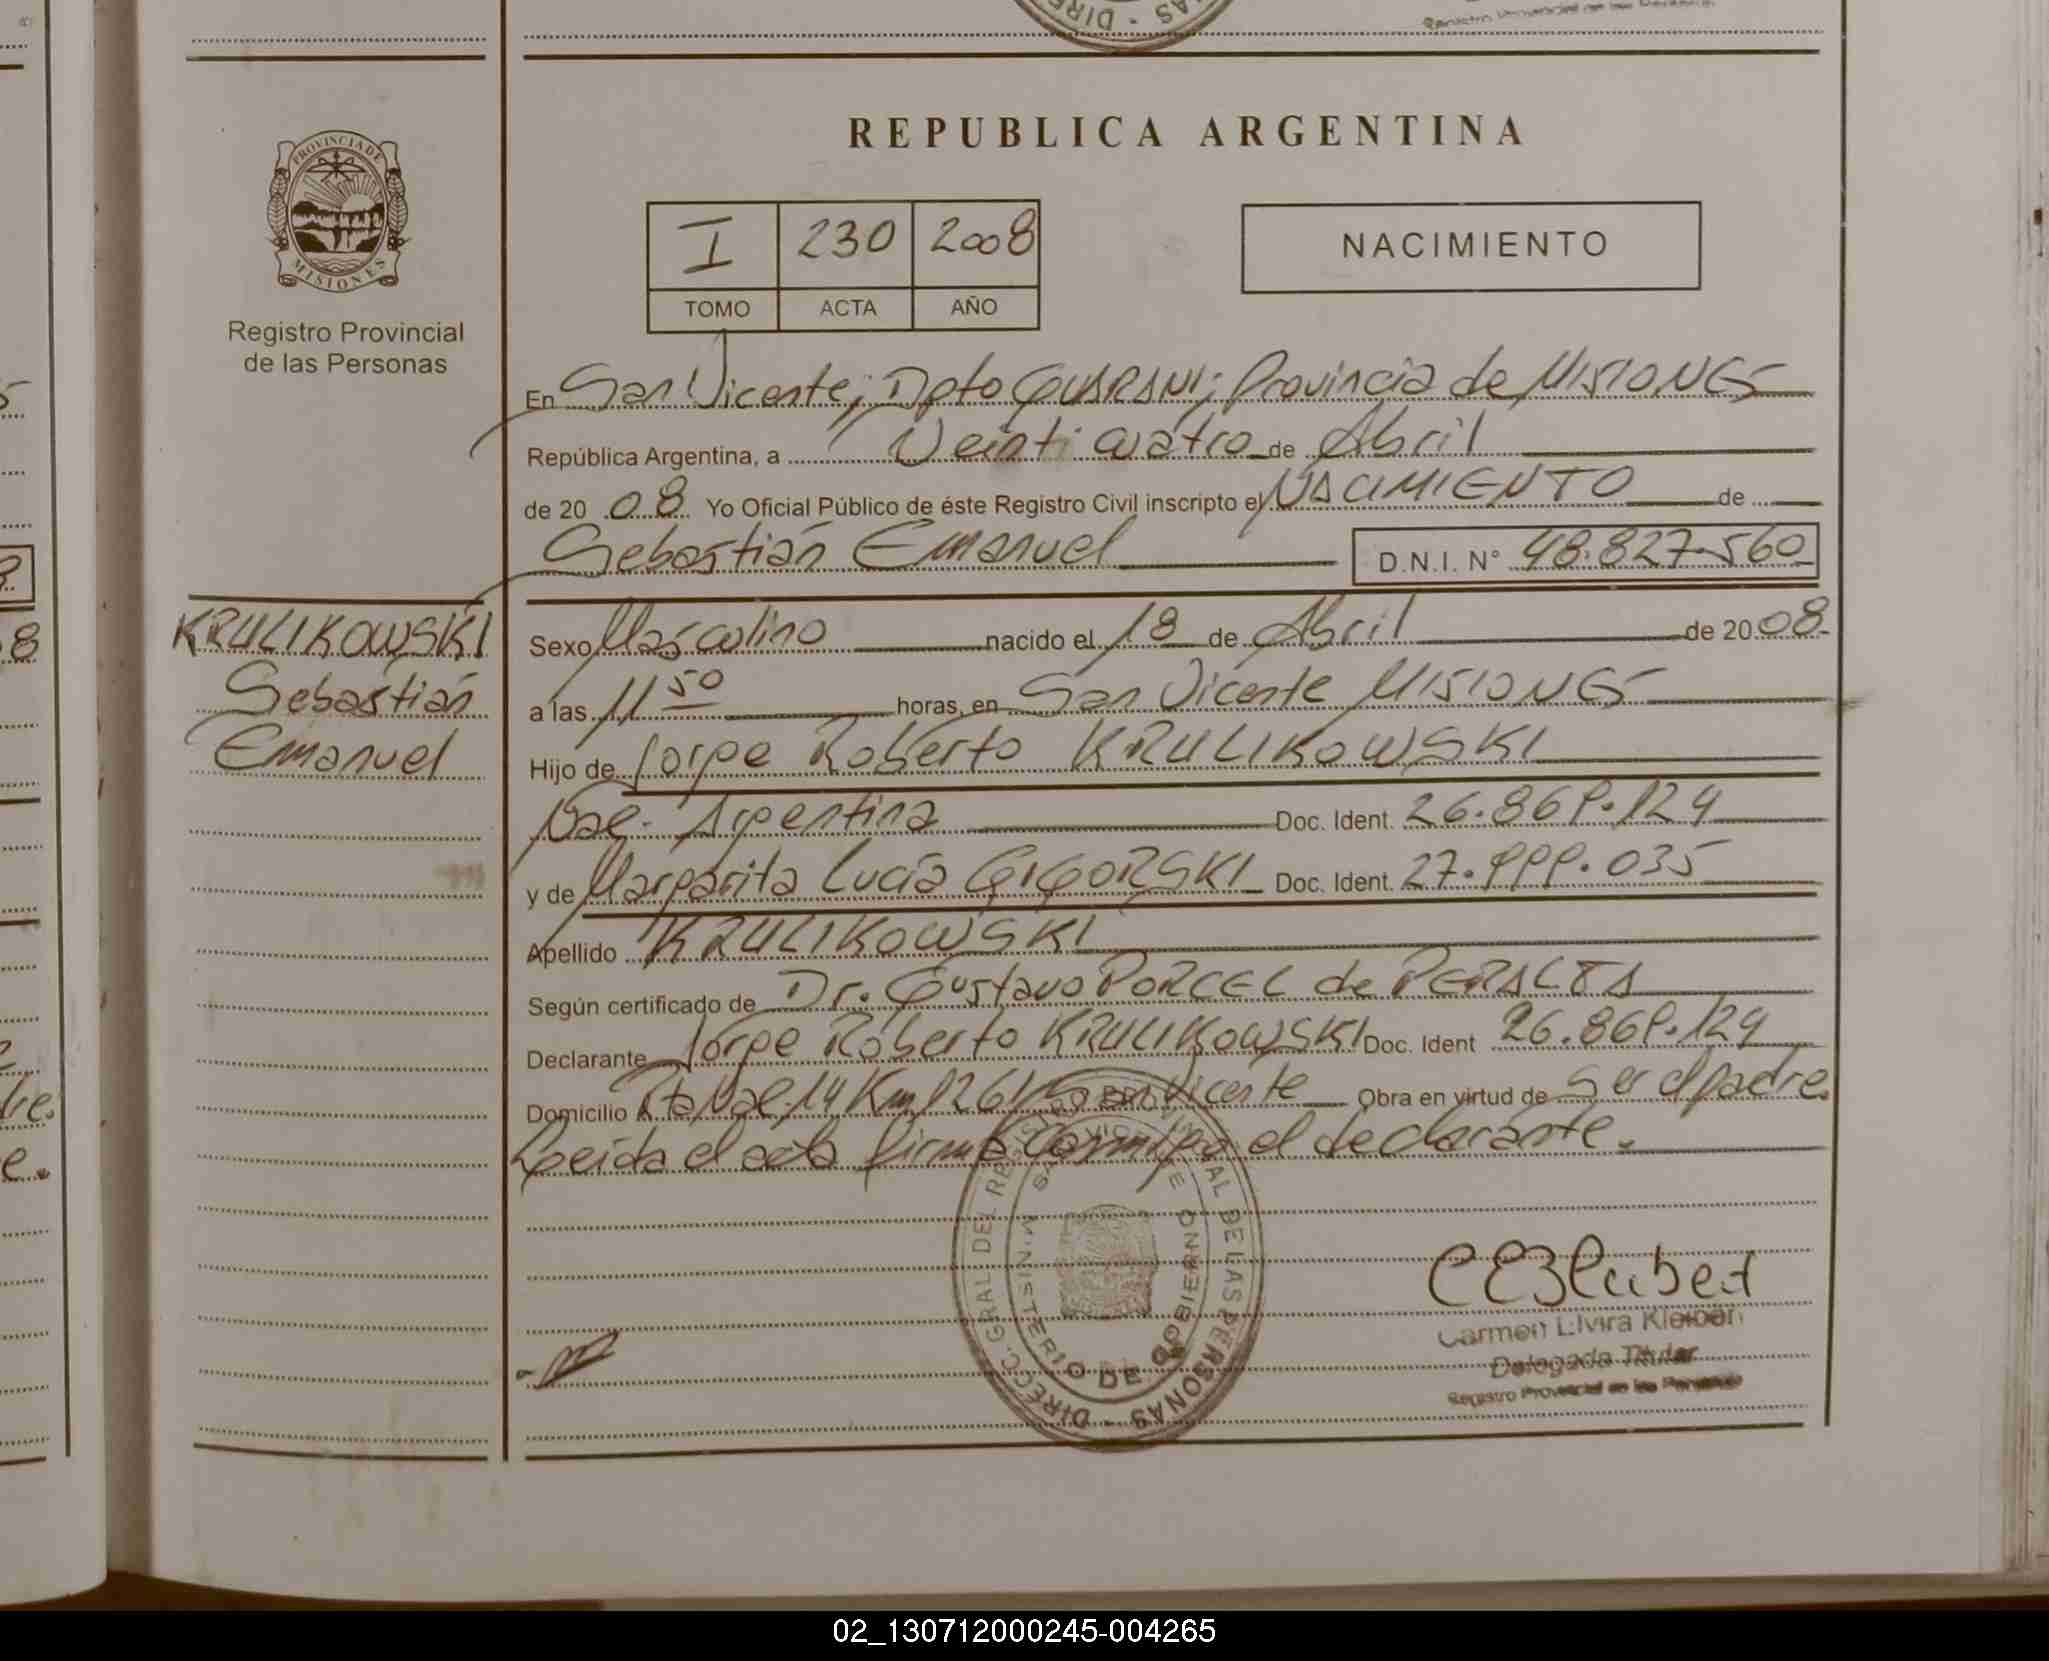 REPUBLICA ARGENTINA
PROVINCIA DE
MISIONES
Registro Provincial
de las Personas
I 230 2008
TOMO ACTA AÑO
NACIMIENTO
En San Vicente; Dpto GUARANI; Provincia de MISIONES
República Argentina, a Veinticuatro de Abril
de 20 08 Yo Oficial Público de éste Registro Civil inscripto el NACIMIENTO de
Sebastián Emanuel D.N.I. N° 48.827.560
KRULIKOWSKI
Sebastián
Emanuel
Sexo Masculino nacido el 18 de Abril de 20 08
a las 11 50 horas, en San Vicente MISIONES
Hijo de Jorge Roberto KRULIKOWSKI
Nac. Argentina Doc. Ident. 26.869.124
y de Margarita Lucía GIGORSKI Doc. Ident. 27.999.035
Apellido KRULIKOWSKI
Según certificado de Dr. Gustavo PORCEL de PERALTA
Declarante Jorge Roberto KRULIKOWSKI Doc. Ident 26.869.124
Domicilio Rta Nac. 14 Km 1261 San Vicente Obra en virtud de Ser el padre.
Leída el acta firma conmigo el declarante.
DIREC. GRAL DEL REGISTRO PROVINCIAL DE LAS PERSONAS
SAN VICENTE
MINISTERIO DE GOBIERNO
Carmen Elvira Kleiber
Delegada Titular
Registro Provincial de las Personas
02_130712000245-004265